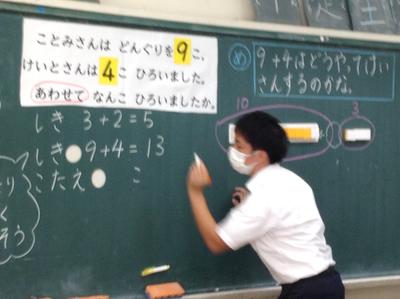 ことみさんは どんぐりを9こ、
けいとさんは4こ ひろいました。
あわせて なんこ ひろいましたか。
しき 3+2=5
しき 9+4=13
こたえ こ
め 9+4はどうやってけい
さんするのかな。
10
3